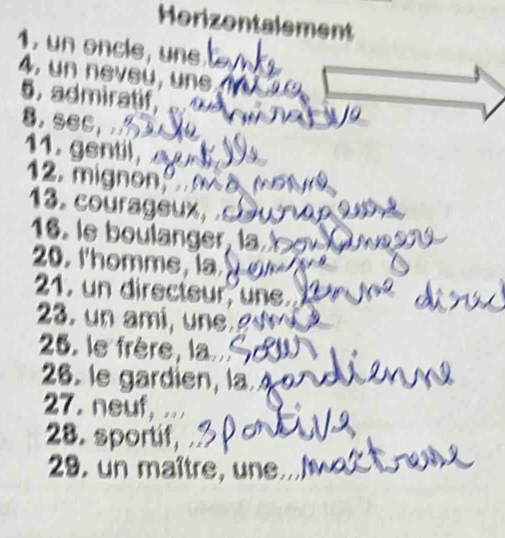 Horizontalement
1. un oncle, une tante
4. un neveu, une nièce
5. admiratif, admirative
8. sec, ...sèche
11. gentil, gentille
12. mignon, ...mignonne
13. courageux, courageuse
16. le boulanger, la boulangère
20. l'homme, la femme
21. un directeur, une... femme direc
23. un ami, une amie
25. le frère, la... Soeur
26. le gardien, la gardienne
27. neuf, ...
28. sportif, ..sportive
29. un maître, une...maîtresse